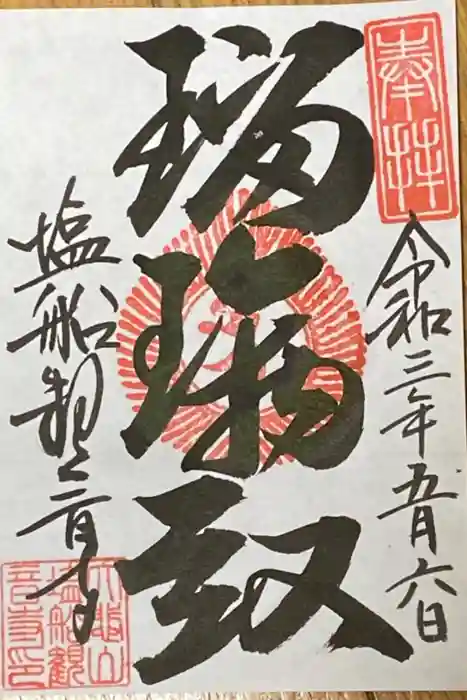 奉拝
令和三年五月六日
瑠璃殿
塩船観音寺
大悲山
塩船觀
音寺印